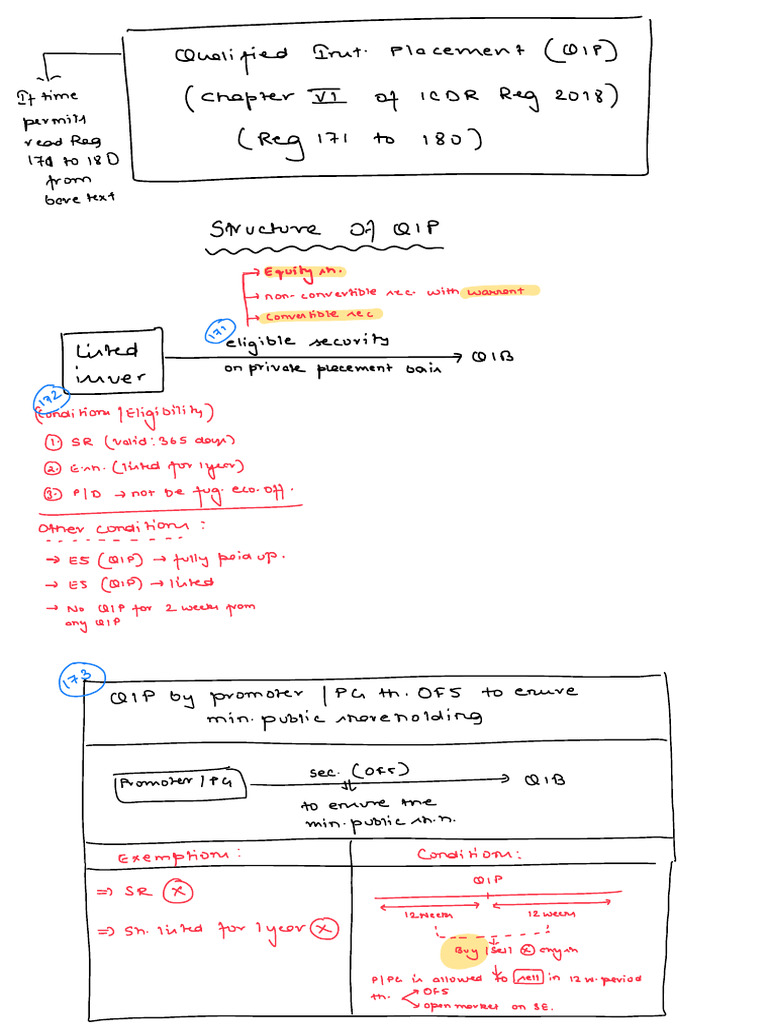 Qualified Inst. Placement (QIP)
(Chapter VI of ICDR Reg 2018)
(Reg 171 to 180)
If time
permits
read Reg
171 to 180
from
bare text
Structure of QIP
→ Equity sh.
→ non-convertible sec. with warrant
→ Convertible sec
171
eligible security
Listed
issuer
on private placement basis
QIB
172
(Conditions / Eligibility)
① SR (valid: 365 days)
② E.sh. (listed for 1 year)
③ P/D → not be fug. eco. off.
Other conditions :
→ ES (QIP) → fully paid up.
→ ES (QIP) → listed
→ No QIP for 2 weeks from
any QIP
173
QIP by promoter / PG th. OFS to ensure
min. public shareholding
Promoter / PG
sec. (OFS)
QIB
to ensure the
min. public s.h.
Exemptions :
⇒ SR (x)
⇒ Sh. listed for 1 year (x)
Conditions :
QIP
12 weeks
12 weeks
Buy / Sell (x) any sh
P/PG is allowed to sell in 12 w. period
th.
→ OFS
→ open market on SE.